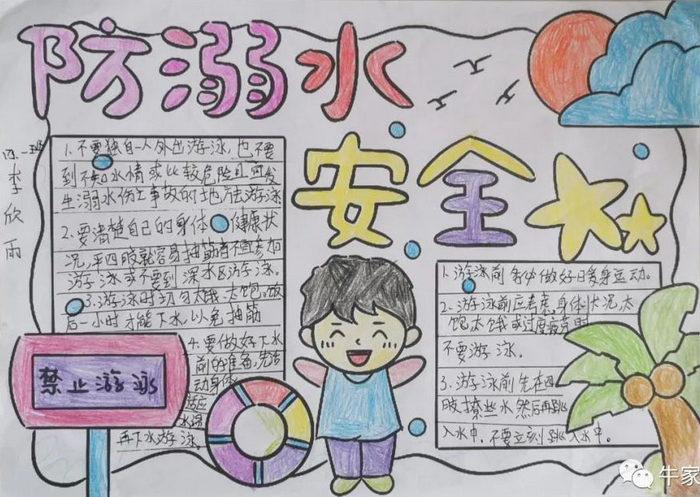 防溺水
安全
四一班
李欣雨
1.不要独自一人外出游泳,也不要
到不知水情或比较危险且西发
生溺水伤亡事故的地方法游泳
2.要清楚自己的身体健康状
况,平四肢就容易抽筋者不宜参加
游泳或不要到深水区游泳。
3.游泳时切勿太饿、太饱。饭
后一小时才能下水,以免抽筋
4.要做好下水
前的准备,先活
动身体
再下水游泳
禁止游泳
1.游泳前身体做好日发身运动。
2.游泳前应考虑身体状况太
饱太饿或过度疲劳时
不要游泳。
3.游泳前先在四
肢撩些水然后再跳
入水中,不要立刻跳入水中。
牛家